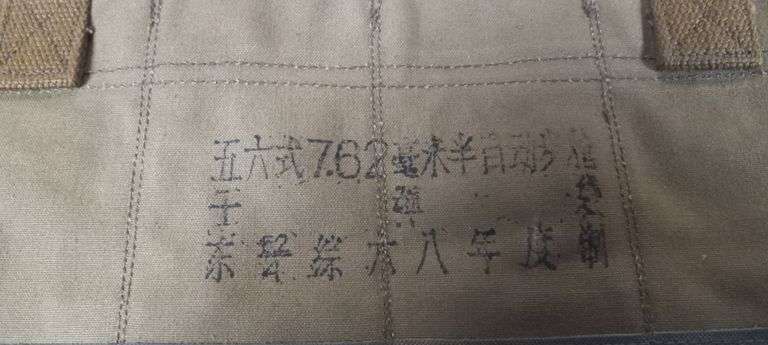 五六式7.62毫米半自动步枪
子弹袋
东字综六八年度制